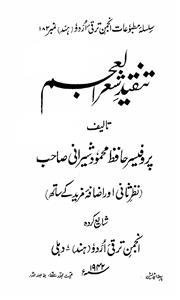 سلسلۂ مطبوعات انجمن ترقی اُردو (ہند) نمبر ۱۸۲
تنقید شعر العجم
تالیف
پروفیسر حافظ محمود شیرانی صاحب
(نظر ثانی اور اضافۂ مزید کے ساتھ)
شائع کردہ
انجمن ترقی اُردو (ہند) دہلی
۱۹۴۲ء